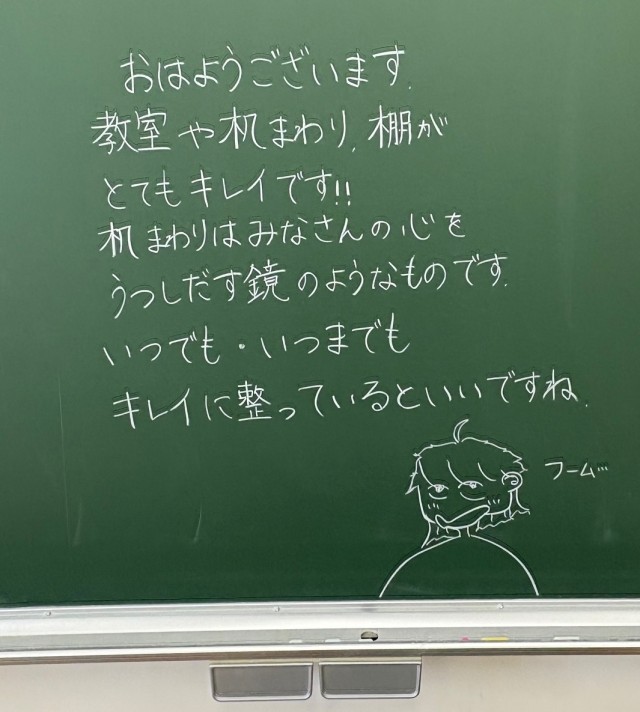 おはようございます.
教室や机まわり,棚が
とてもキレイです!!
机まわりはみなさんの心を
うつしだす鏡のようなものです.
いつでも・いつまでも
キレイに整っているといいですね.
フーム…